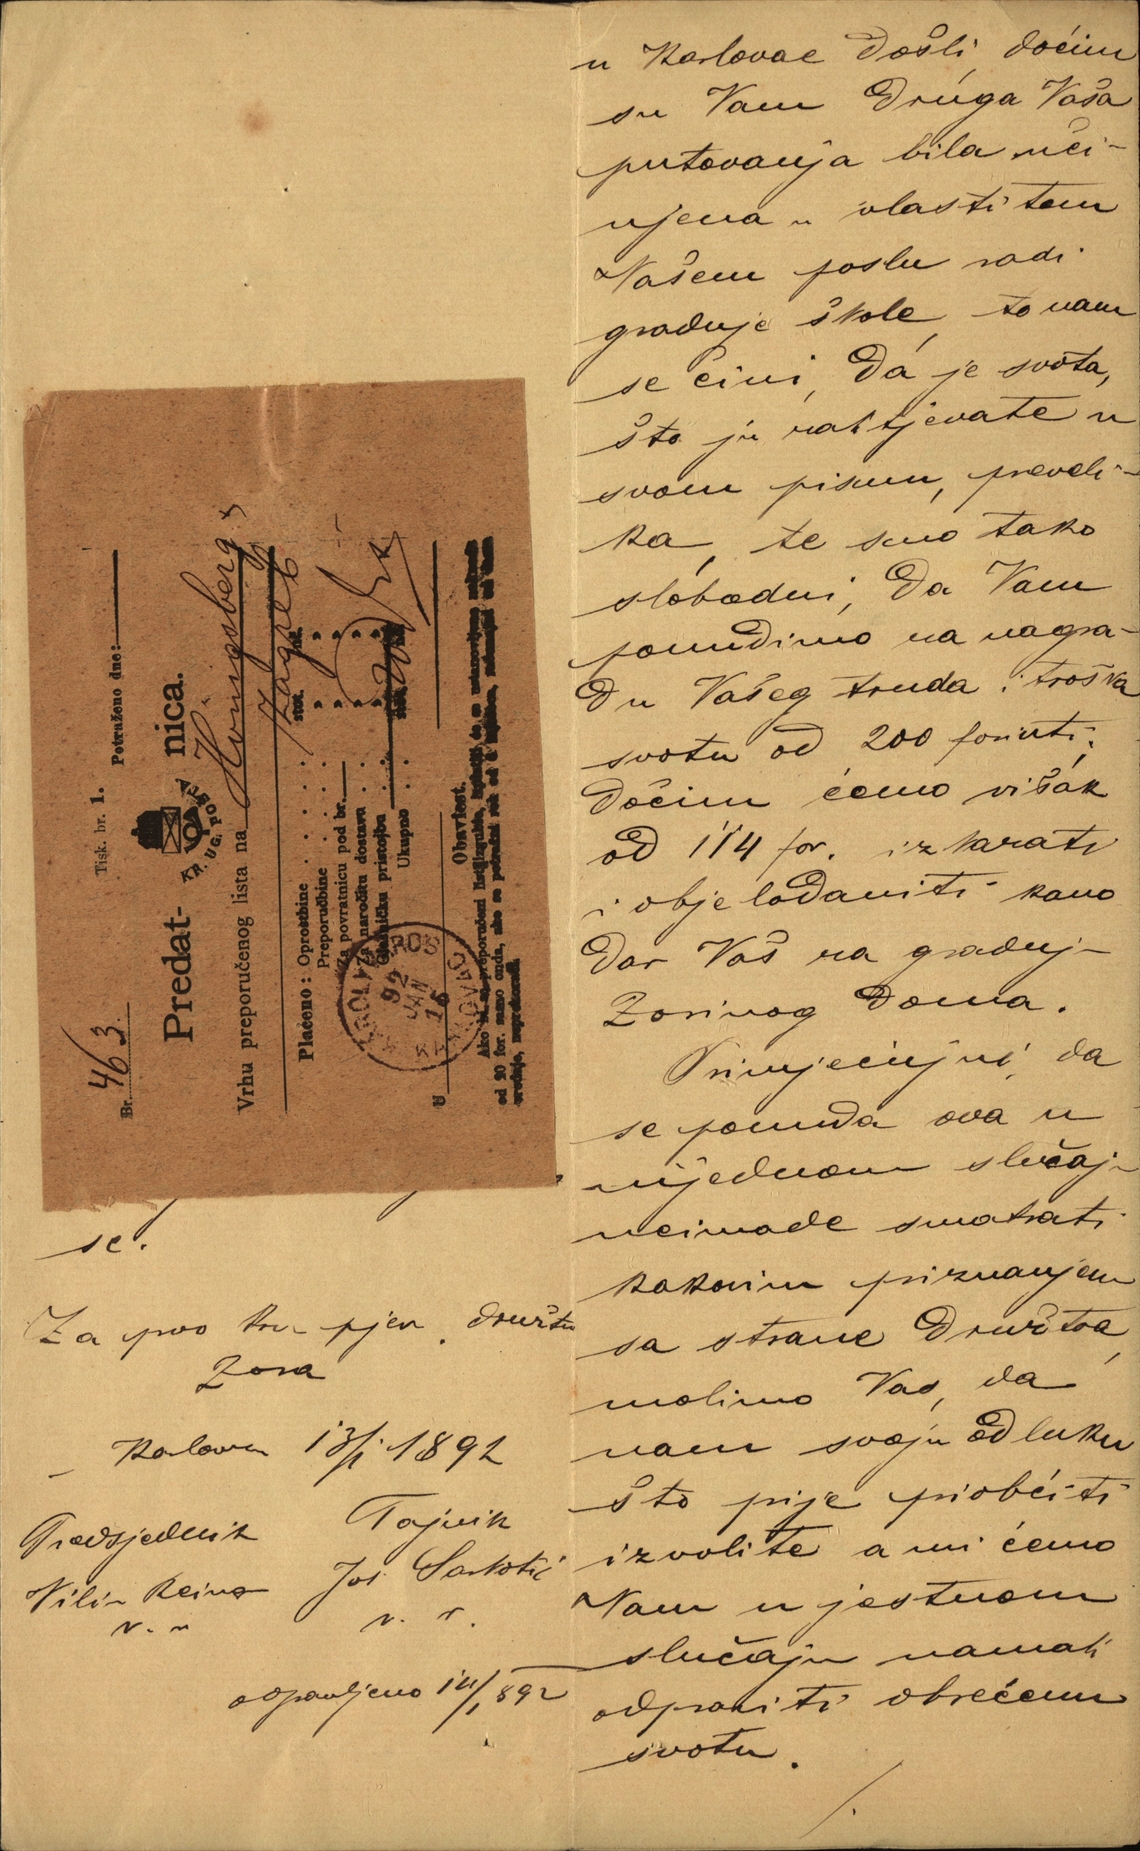 u Karlovac došli, doćim
su Vam druga Vaša
putovanja bila uči-
njena u vlastitom
Vašem poslu radi
gradnje škole, to nam
se čini, da je svota,
što ju zahtjevate u
svom pismu, preveli-
ka, te smo tako
slobodni, da Vam
ponudimo na nagra-
du Vašeg truda i troška
svotu od 200 forinti,
dočim ćemo višak
od 114 for. izkazati
i objelodaniti kano
dar Vaš na gradnj-
Zorinog doma.
Primjećujući, da
se ponuda ova u
nijednom slučaju
neimade smatrati
kakovim priznanjem
sa strane družtva,
molimo Vas, da
nam svoju odluku
što prije priobćiti
izvolite a mi ćemo
Vam u jestnom
slučaju namah
odpraviti obrećenu
svotu.
se.
Za prvo hrv. pjev. družtvo
Zora
Karlovac 13/1 1892
Predsjednik
Tajnik
Vilim Reiner
Jos. Sarkotić
v. r.
v. r.
odpravljeno 14/1 892
Br. 463
Tisk. br. 1.
Potraženo dne:
Predat- nica.
KR. UG. POŠT
Vrhu preporučenog lista na Hönigsberg
Zagreb
Plaćeno: Oprostbine
Preporučbine
Za povratnicu pod br.
Za naročitu dostavu
Glasnička pristojba
Ukupno
U
KAROLYVAROS
92
JAN
16
KARLOVAC
Obaviest.
od 20 for. samo onda, ako se